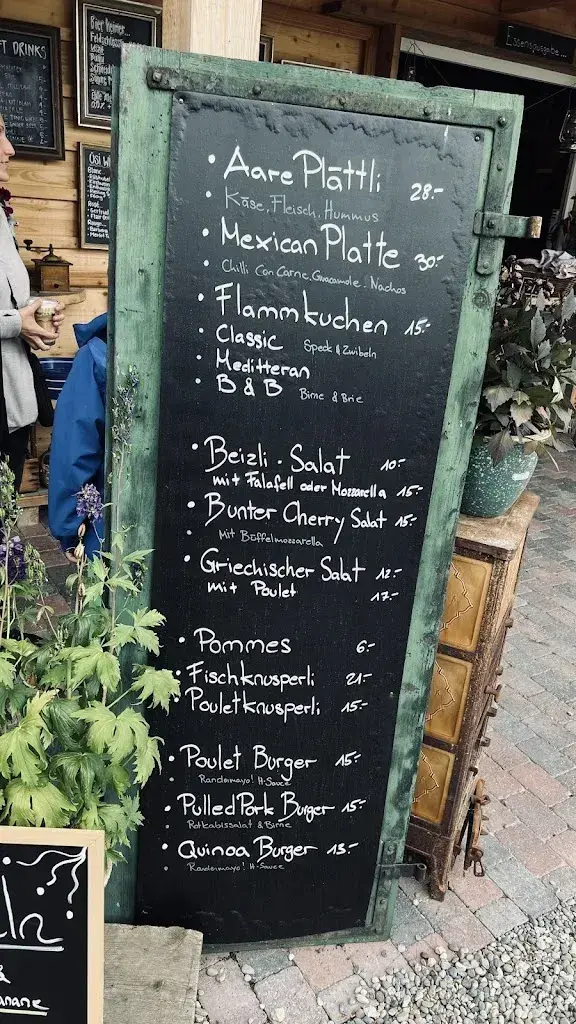 FT DRINKS
Bier
Essensausgabe
Aare Plättli 28.-
Käse, Fleisch, Hummus
Mexican Platte 30.-
Chilli Con Carne, Guacamole, Nachos
Flammkuchen 15.-
Classic Speck & Zwibeln
Meditteran
B & B Birne & Brie
Beizli-Salat 10.-
mit Falafell oder Mozzarella 15.-
Bunter Cherry Salat 15.-
Mit Büffelmozzarella
Griechischer Salat 12.-
mit Poulet 17.-
Pommes 6.-
Fischknusperli 21.-
Pouletknusperli 15.-
Poulet Burger 15.-
Randenmayo! H-Sauce
Pulled Pork Burger 15.-
Rotkabissalat & Birne
Quinoa Burger 13.-
Randenmayo! H-Sauce
&
anane